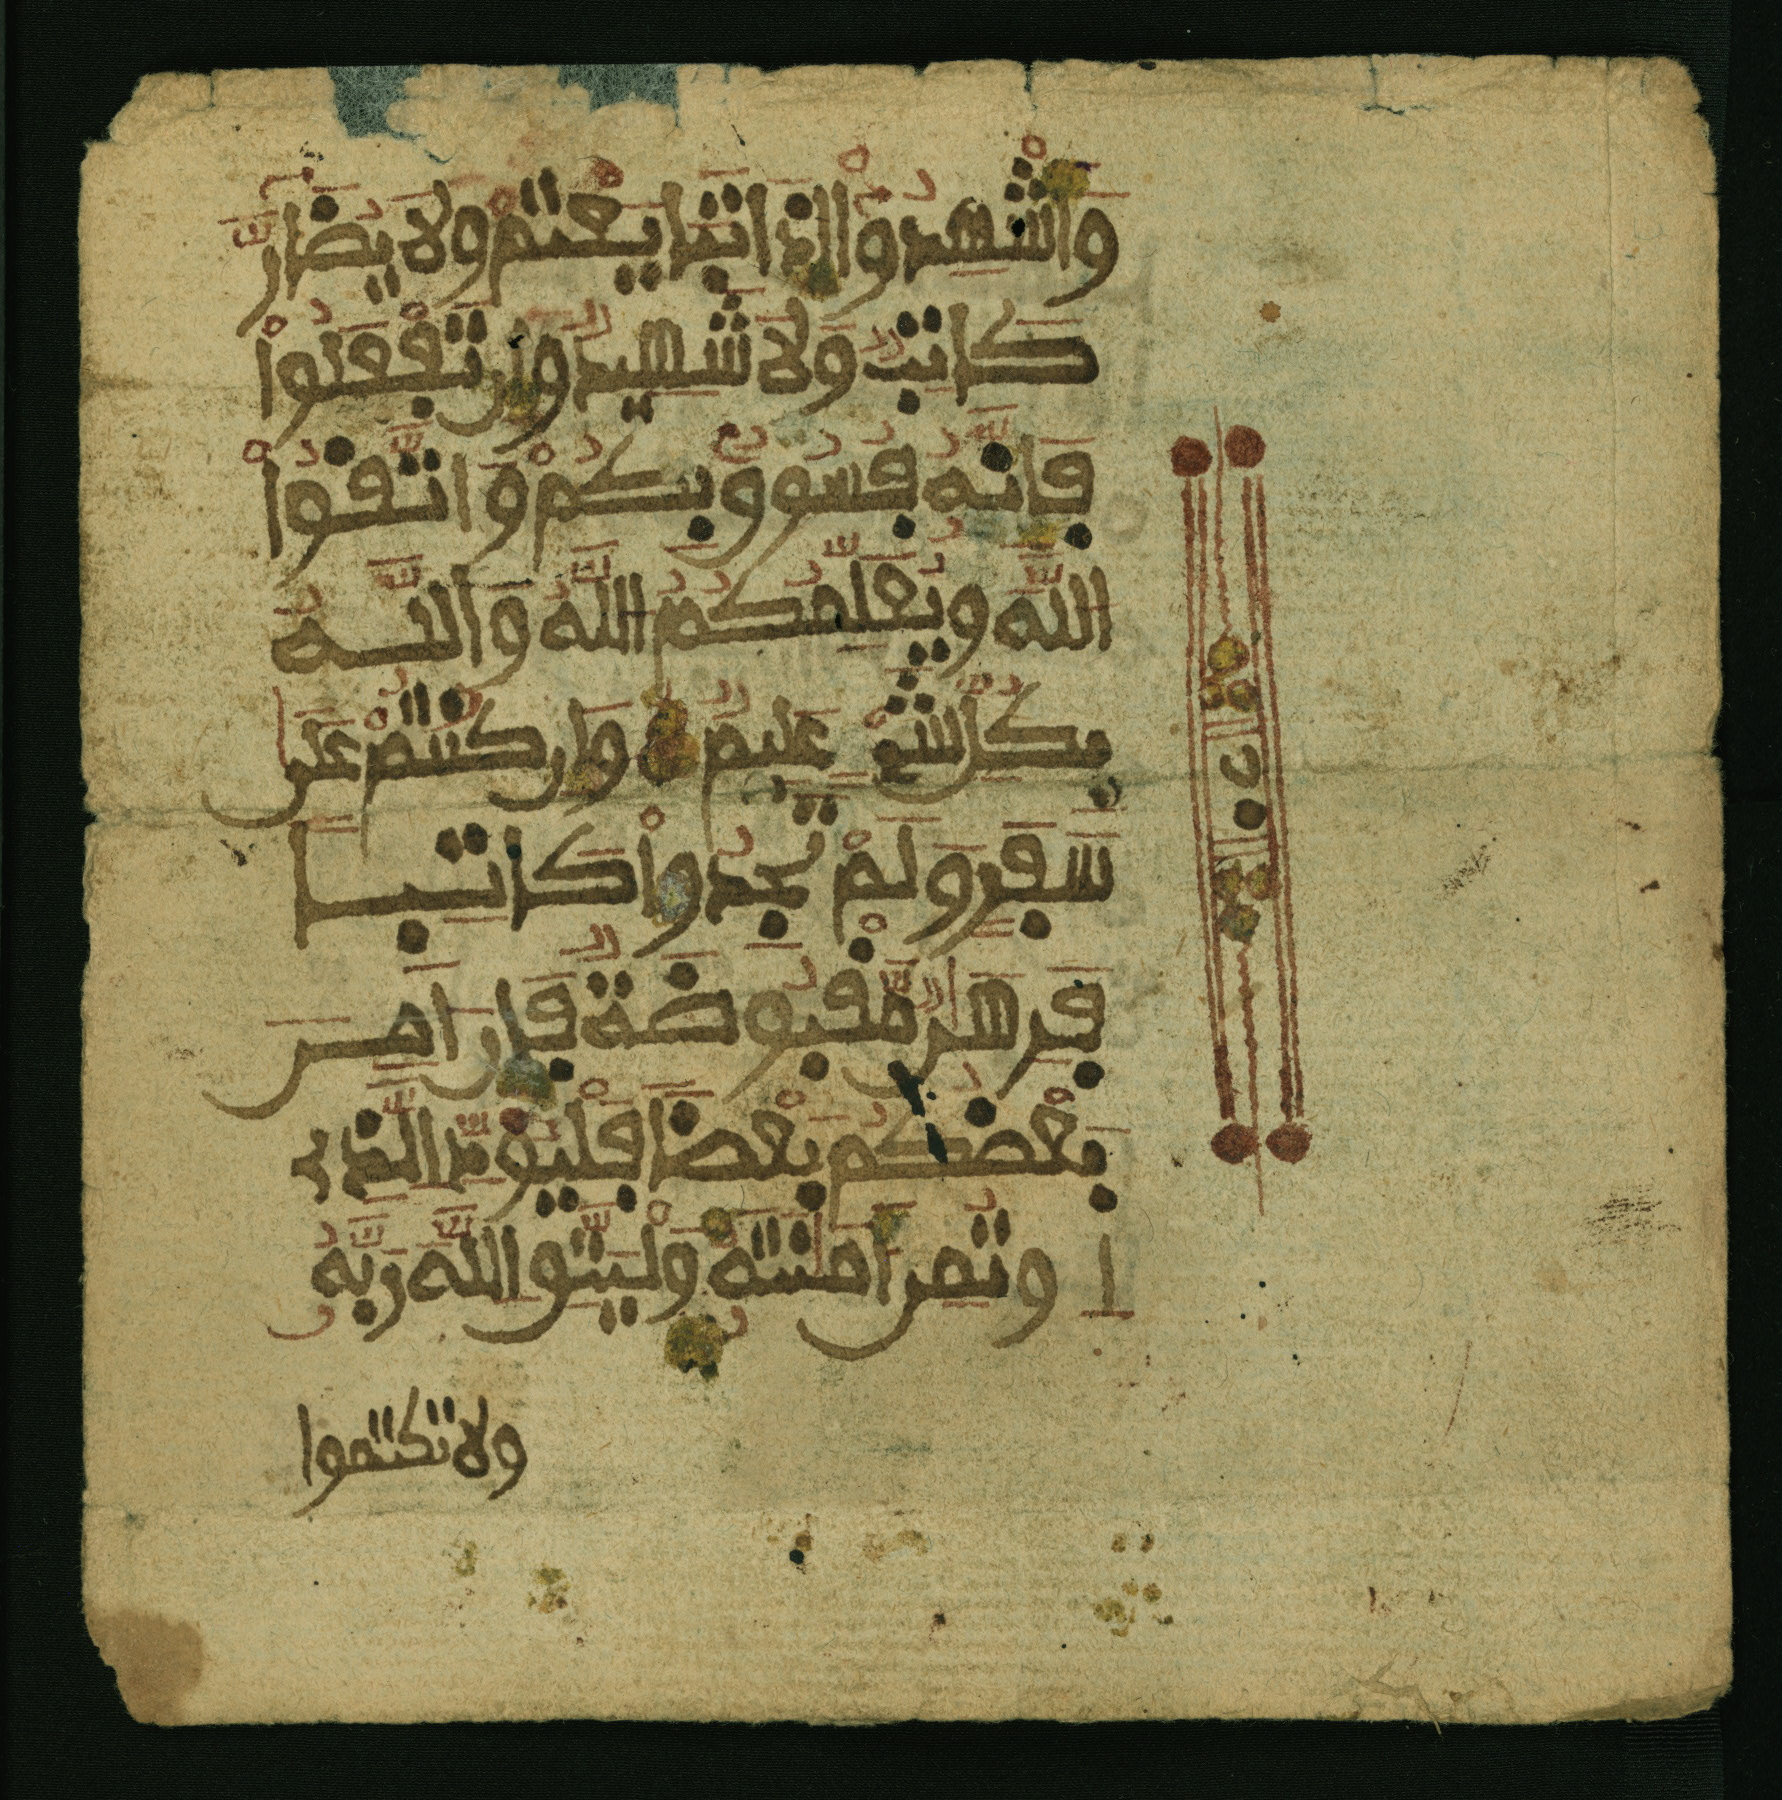 وَأَشْهِدُوا إِذَا تَبَايَعْتُمْ وَلَا يُضَارَّ
كَاتِبٌ وَلَا شَهِيدٌ وَإِن تَفْعَلُوا
فَإِنَّهُ فُسُوقٌ بِكُمْ وَاتَّقُوا
اللَّهَ وَيُعَلِّمُكُمُ اللَّهُ وَاللَّهُ
بِكُلِّ شَيْءٍ عَلِيمٌ وَإِن كُنتُمْ عَلَىٰ
سَفَرٍ وَلَمْ تَجِدُوا كَاتِبًا
فَرِهَٰنٌ مَّقْبُوضَةٌ فَإِنْ أَمِنَ
بَعْضُكُم بَعْضًا فَلْيُؤَدِّ الَّذِي
اوتُمِنَ أَمَٰنَتَهُ وَلْيَتَّقِ اللَّهَ رَبَّهُ
ولا تكتموا